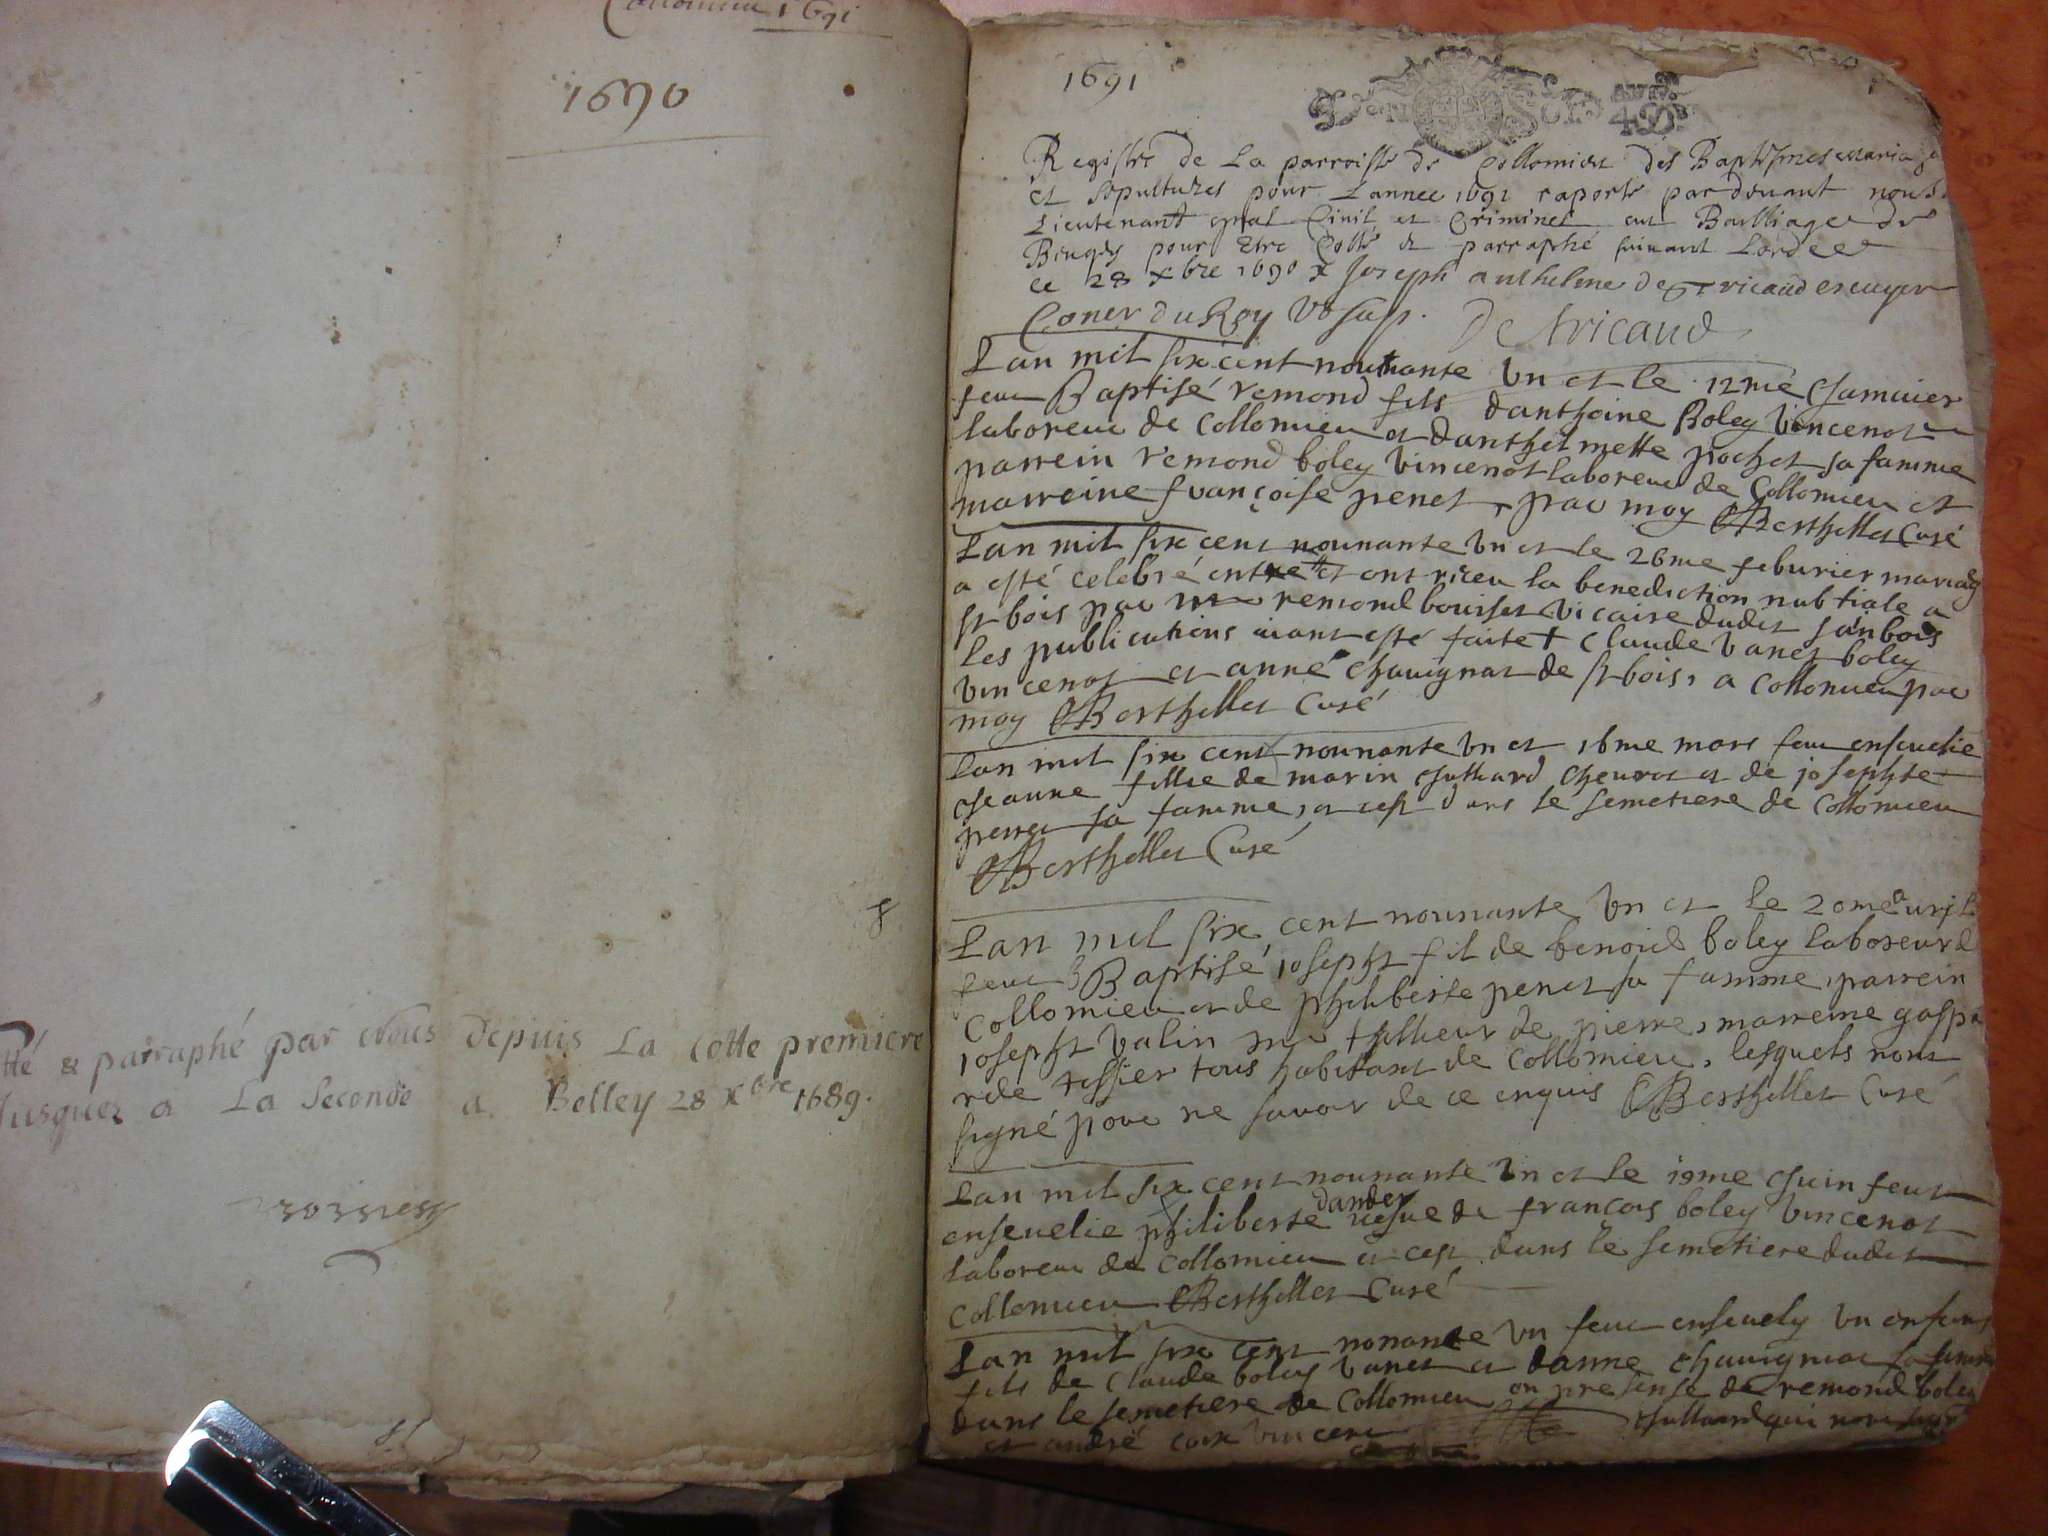 Collomieu 1691
1690
tté & parraphé par Nous depuis La Cotte premiere
Jusques a La Seconde a Belley 28 xbre 1689.
1691
Registre de La parroisse de Collomieu des Baptesmes mariages
et sepultures pour Lannee 1691 raporté pardevant nous
Lieutenant gnal Civil et Criminel au Bailliage de
Beugey pour Etre Cotté et parraphé suivant Lordce
ce 28 xbre 1690 Joseph anthelme de Tricaud escuyer
Coner du Roy
De tricaud
Lan mil six cent nounante Vn et le 12me Januier
feut Baptisé remond fils danthoine Boley Vincenot
laboreur de Collomieu et danthelmette pochet sa famme
parrein remond boley Vincenot laboreur de Collomieu et
marreine françoise penet, par moy Berthellet Curé
Lan mil six cent nounante Vn et le 26me feburier mariage
a esté celebré entre et ont riceu la benediction nubtiale a
st bois par mre remond bouiset Vicaire dudit sainbois
les publications aiant esté faite + Claude Vanet boley
Vincenot et anne Chauignat de st bois, a Collomieu par
moy Berthellet Curé
Lan mil six cent nounante Vn et 16me mars feut enseuelie
Jeanne fillie de marin Julliard Cheurot et de josephte
penet sa famme, et cest dans le semetiere de Collomieu
Berthellet Curé
Lan mil six cent nounante Vn et le 20me auril
feut Baptisé josepht fil de benoid boley laboreur d
Collomieu et de philiberte penet sa famme, parrein
josepht Valin mre tallieur de pierre, marreine gaspa
rde tissier tous habitant de Collomieu, lesquels nont
signé pour ne sauoir de ce enquis Berthellet Curé
Lan mil six cent nounante Vn et le 19me Juin feut
enseuelie philiberte dander uesue de francois boley Vincenot
laboreur de Collomieu et cest dans le semetiere dudit
Collomieu Berthellet Curé
Lan mil six cent nonante Vn feut enseuely Vn enfant
fils de Claude boley Vanet et danne Chauignat sa famme
dans le semetiere de Collomieu en presense de remond boley
et andré Vincent Julliard qui nont signé